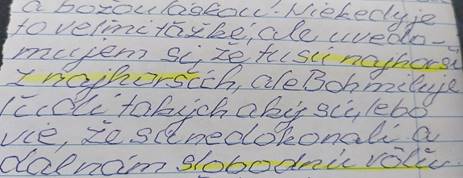 a božou láskou. Niekedy je
to veľmi ťažké, ale uvedo-
mujem si, že tu sú najhorší
z najhorších, ale Boh miluje
ľudí takých aký sú, lebo
vie, že sú nedokonalí a
dal nám slobodnú vôľu.